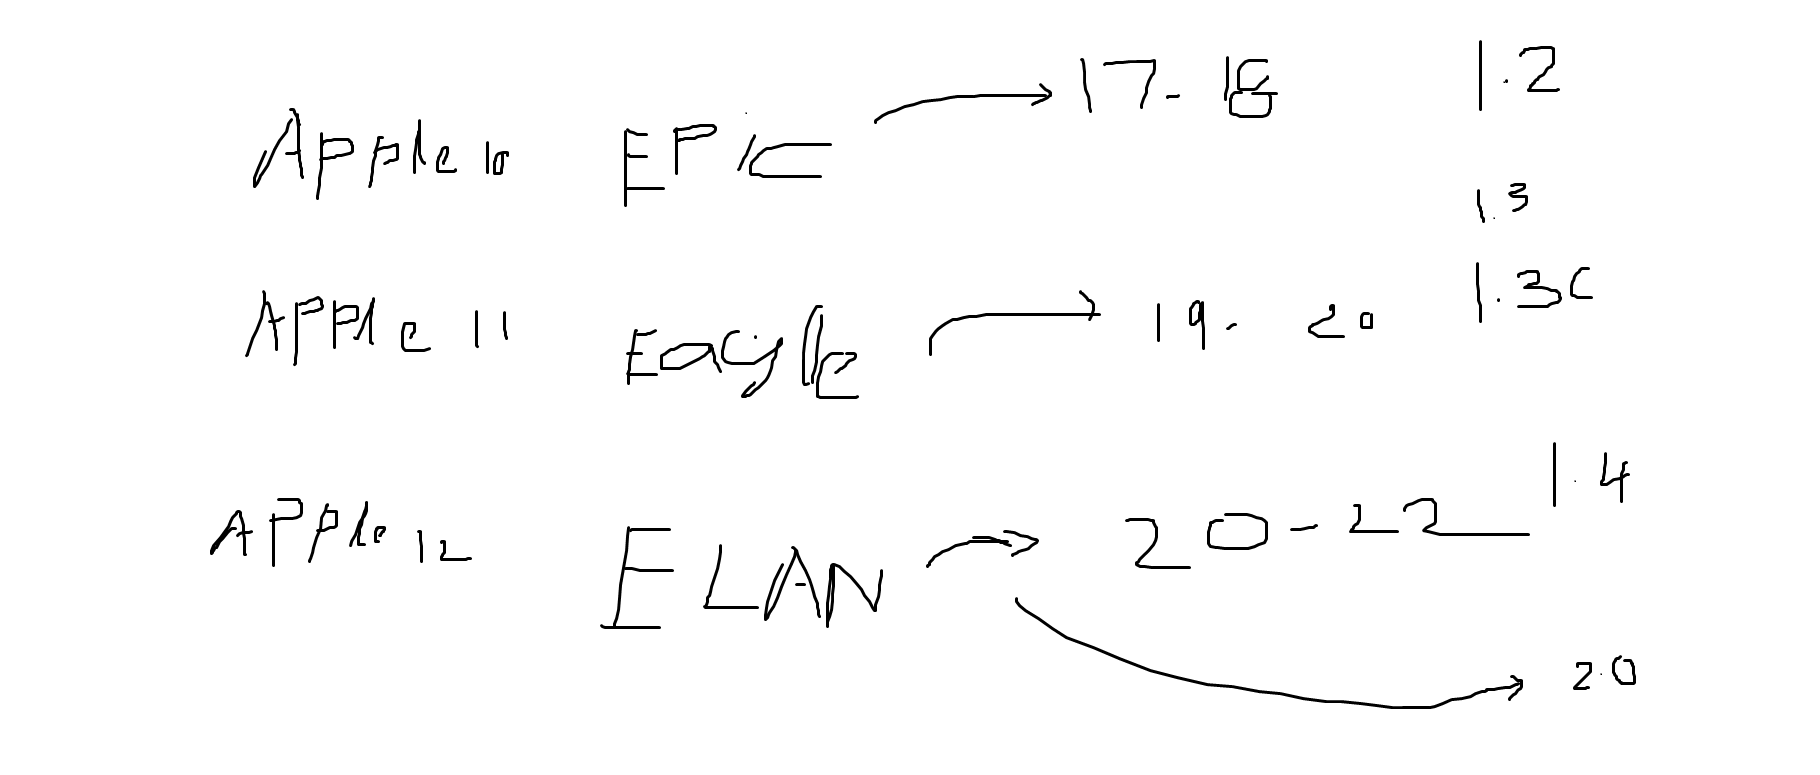 Apple 10 EPic → 17-18 1.2
1.3
APPle 11 Eagle → 19-20 1.3c
APPle 12 ELAN → 20-22 1.4
→ 2.0